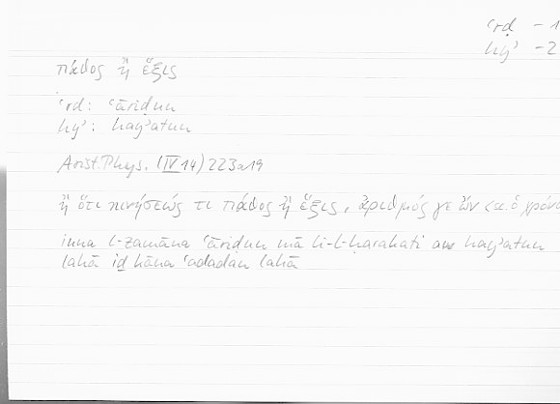 ʿrḍ – 1
hyʾ – 2
πάθος ἢ ἕξις
ʿrḍ: ʿāriḍun
hyʾ: hayʾatun
Arist. Phys. (IV 14) 223a19
ἢ ὅτι κινήσεώς τι πάθος ἢ ἕξις, ἀριθμός γε ὤν sc. ὁ
inna l-zamāna ʿāriḍun mā li-l-ḥarakati aw hayʾatun
lahā iḏ kāna ʿadadan lahā